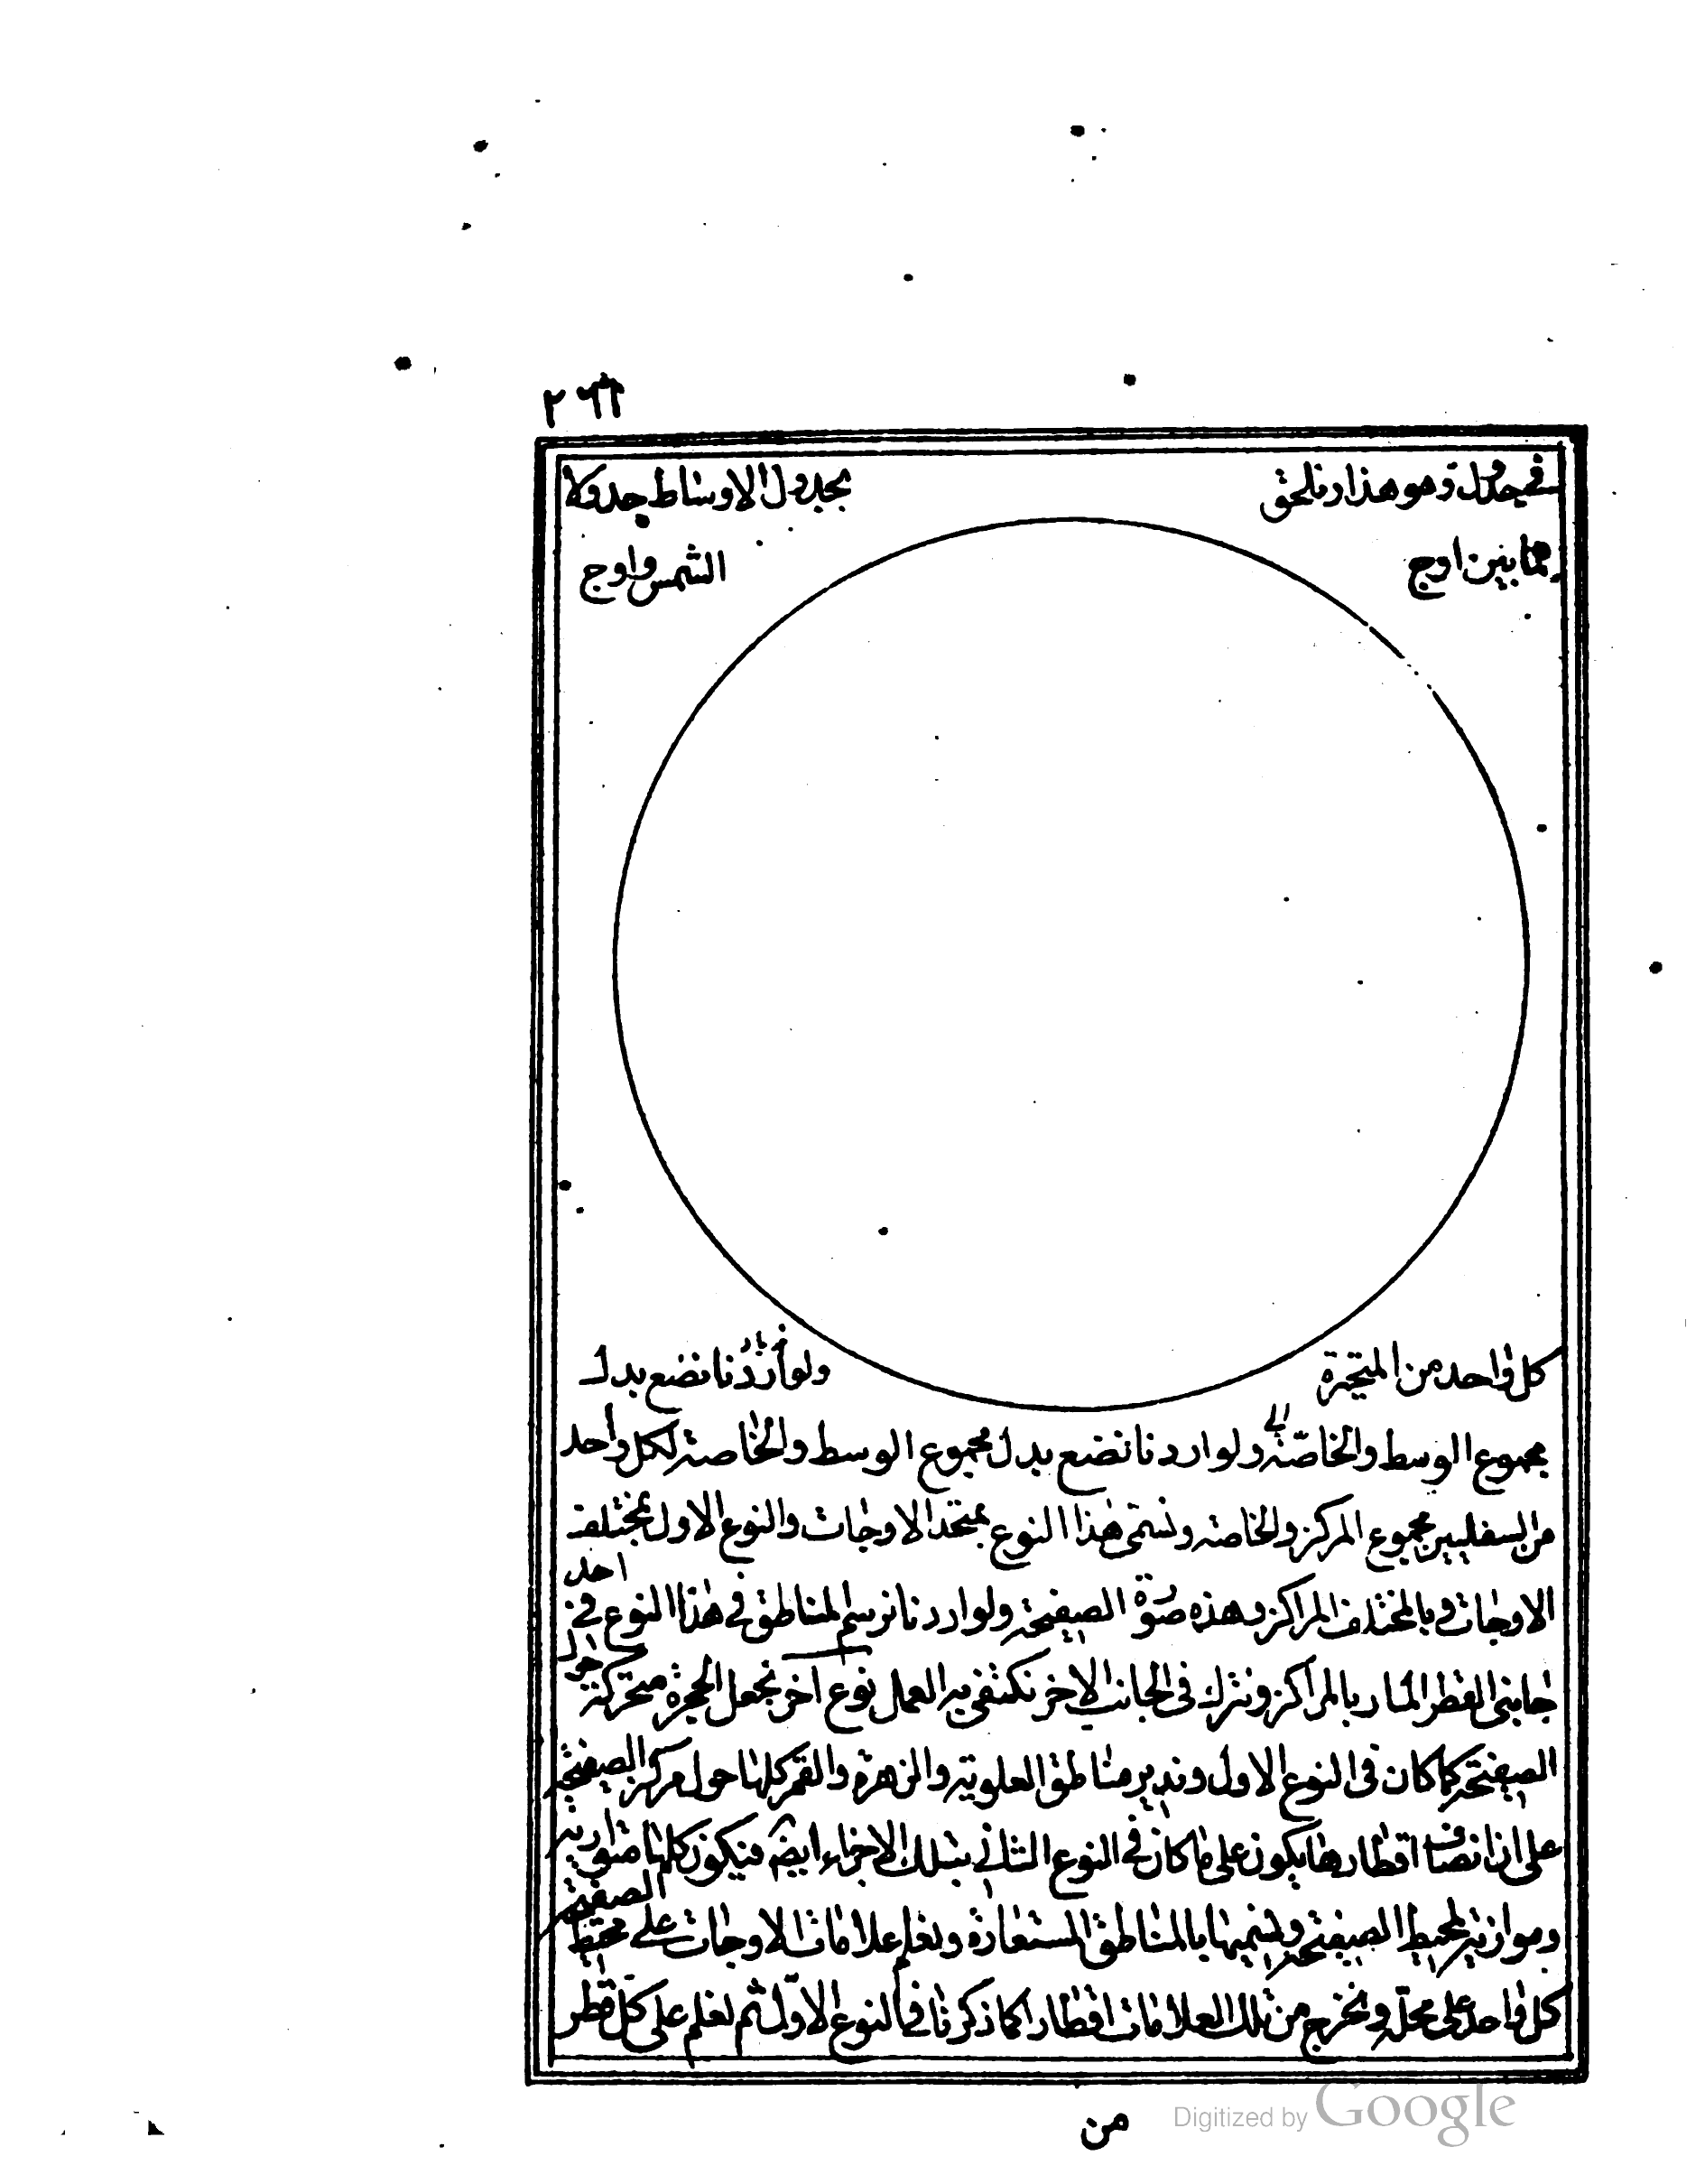 ٢٦٦
في جدول وهو هذا ونلحق بجدول الاوساط جدولا
فيما بين اوج الشمس واوج
كل واحد من المتحيرة ولو اردنا نضع بدل
مجموع الوسط والخاصّة ولو اردنا نضع بدل مجموع الوسط والخاصة لكل واحد
من السفليين مجموع المركز والخاصة ونسمى هذا النوع بمتحد الاوجات والنوع الاول بمختلف
الاوجات وبالمختلف المراكز وهذه صورة الصفيحة ولو اردنا نرسم المناطق في هذا النوع في احد
جانبى القطر المار بالمراكز ونترك فى الجانب الاخر نكتفى به العمل نوع آخر نجعل الحجرة متحركة حول
الصفيحة كما كان فى النوع الاول وندير مناطق العلوية والزهرة والقمر كلها حول مركز الصفيحة
على ان انصاف اقطارها يكون على ما كان فى النوع الثانى بتلك الاجزاء ايضا فيكون كلها متوازية
وموازية لمحيط الصفيحة ونسميها بالمناطق المستعارة ونعلم علامات الاوجات على محيط الصفيحة
كل واحد على محله ونخرج من تلك العلامات اقطارا كما ذكرنا فى النوع الاوّل ثم نعلم على كل قطر
من
Digitized by Google